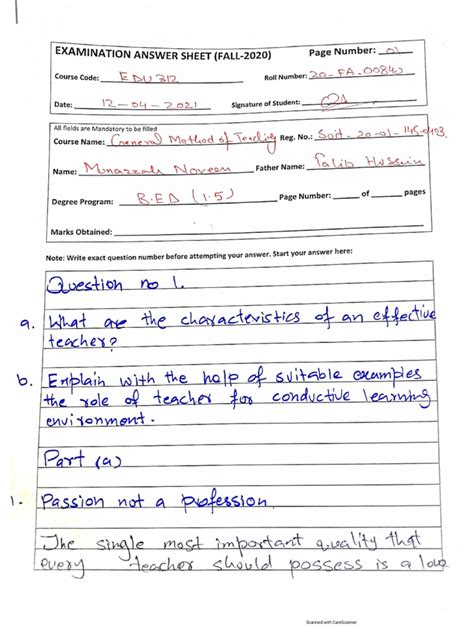 EXAMINATION ANSWER SHEET (FALL-2020) Page Number: 01
Course Code: EDU312 Roll Number: 20-FA-00840
Date: 12-04-2021 Signature of Student:
All fields are Mandatory to be filled
Course Name: General Method of Teaching Reg. No.:
Name: Munazzah Noreen Father Name: Talib Hussain
Degree Program: B.ED (1.5) Page Number: ____ of ____ pages
Marks Obtained:
Note: Write exact question number before attempting your answer. Start your answer here:
Question no 1.
a. What are the characteristics of an effective
teacher?
b. Explain with the help of suitable examples
the role of teacher for conductive learning
environment.
Part (a)
1. Passion not a profession
The single most important quality that
every teacher should possess is a love
Scanned with CamScanner